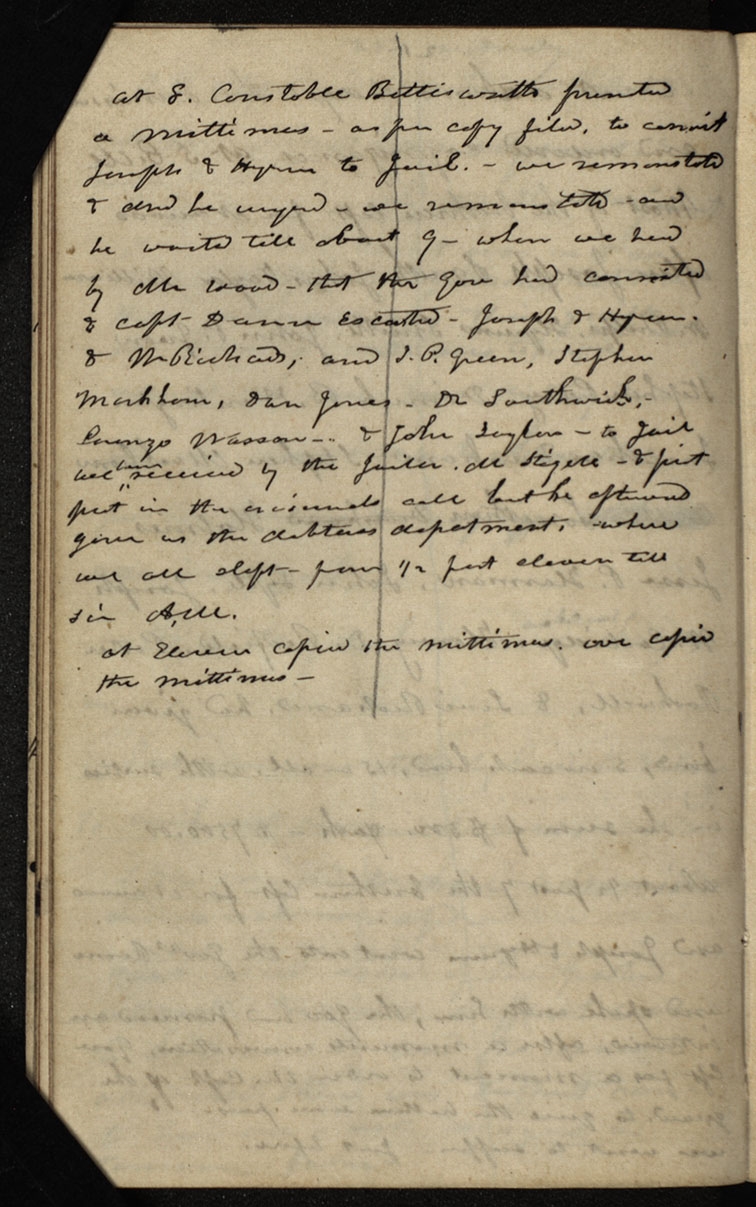 at 8. Constable Bettisworth presented
a mittimus - as per copy filed, to commit
Joseph & Hyrum to Jail. - we remonstrated
& and he urged - we remonstrated - and
he waited till about 9 - when we heard
by Mr Wood - that the Gov had committed
& capt Dunn Escorted - Joseph & Hyrum.
& W Richards, and J. P. Green, Stephen
Markham, Dan Jones - Dr Southwick, -
Lorenzo Wasson -- & John Taylor - to Jail
were received by the Jailer. Mr Stigall - & first
put in the criminals cell but he afterward
gave us the debtors department. where
we all slept - from 1/2 past eleven till
six A.M.
at Eleven copied the mittimus. we copied
the mittimus -